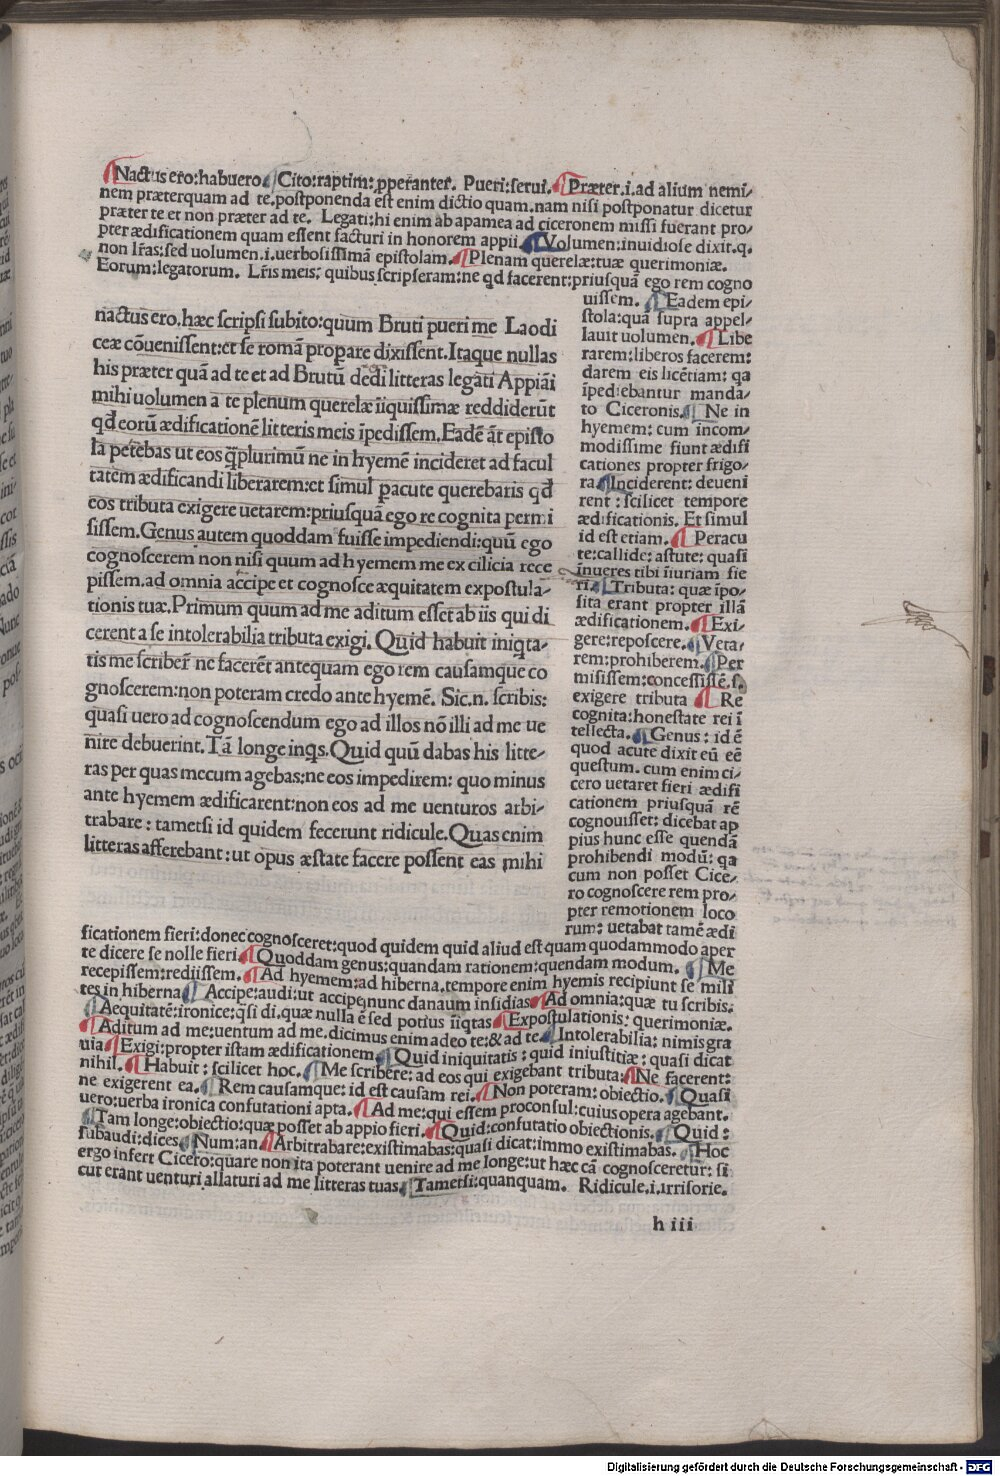 Nactus ero: habuero. Cito: raptim: ꝓperanter. Pueri: serui. Præter .i. ad alium nemi/
nem præterquam ad te. postponenda est enim dictio quam. nam nisi postponatur dicetur
præter te et non præter ad te. Legati: hi enim ab apamea ad ciceronem missi fuerant pro/
pter ædificationem quam essent facturi in honorem appii. Volumen: inuidiose dixit. q.
non lr̃as: sed uolumen .i. uerbosissimã epistolam. Plenam querelæ: tuæ querimoniæ.
Eorum: legatorum. Lr̃is meis: quibus scripseram: ne qd facerent: priusquã ego rem cogno
uissem. Eadem epi/
stola: quã supra appel/
lauit uolumen. Libe
rarem: liberos facerem:
darem eis licẽtiam: qa
ĩpediebantur manda/
to Ciceronis. Ne in
hyemem: cum incom/
modissime fiunt ædifi
cationes propter frigo/
ra. Inciderent: deueni
rent: scilicet tempore
ædificationis. Et simul
id est etiam. Peracu
te: callide: astute: quasi
ĩnueres tibi ĩiuriam fie
ri. Tributa: quæ ĩpo/
sita erant propter illã
ædificationem. Exi/
gere: reposcere. Veta/
rem: prohiberem. Per
misissem: concessissẽ. s.
exigere tributa. Re
cognita: honestate rei ĩ
tellecta. Genus: id ẽ
quod acute dixit eũ eẽ
questum. cum enim ci/
cero uetaret fieri ædifi
cationem priusquã rẽ
cognouisset: dicebat ap
pius hunc esse quendã
prohibendi modũ: qa
cum non posset Cice/
ro cognoscere rem pro/
pter remotionem loco
rum: uetabat tamẽ ædi
nactus ero. hæc scripsi subito: quum Bruti pueri me Laodi
ceæ cõuenissent: et se romã properare dixissent. Itaque nullas
his præter quã ad te et ad Brutũ dedi litteras legati Appiãi
mihi uolumen a te plenum querelæ ĩiquissimæ reddiderũt
qd eorũ ædificationẽ litteris meis ĩpedissem. Eadẽ ãt episto
la petebas ut eos q̃plurimũ ne in hyemẽ incideret ad facul
tatem ædificandi liberarem: et simul ꝑacute querebaris qd
eos tributa exigere uetarem: priusquã ego re cognita permi
sissem. Genus autem quoddam fuisse impediendi: quũ ego
cognoscerem non nisi quum ad hyemem me ex cilicia rece
pissem. ad omnia accipe et cognosce æquitatem expostula/
tionis tuæ. Primum quum ad me aditum esset ab iis qui di
cerent a se intolerabilia tributa exigi. Quid habuit iniqta/
tis me scriber̃ ne facerẽt antequam ego rem causamque co
gnoscerem: non poteram credo ante hyemẽ. Sic .n. scribis:
quasi uero ad cognoscendum ego ad illos nõ illi ad me ue
nire debuerint. Tã longe inqs. Quid quũ dabas his litte/
ras per quas mecum agebas: ne eos impedirem: quo minus
ante hyemem ædificarent: non eos ad me uenturos arbi/
trabare: tametsi id quidem fecerunt ridicule. Quas enim
litteras afferebant: ut opus æstate facere possent eas mihi
ficationem fieri: donec cognosceret: quod quidem quid aliud est quam quodammodo aper
te dicere se nolle fieri. Quoddam genus: quandam rationem: quendam modum. Me
recepissem: rediissem. Ad hyemem: ad hiberna. tempore enim hyemis recipiunt se mili
tes in hiberna. Accipe: audi: ut accipe nunc danaum insidias. Ad omnia: quæ tu scribis.
Aequitatẽ: ironice: q̃si di. quæ nulla ẽ sed potius ĩiqtas. Expostulationis: querimoniæ.
Aditum ad me: uentum ad me. dicimus enim adeo te: & ad te. Intolerabilia: nimis gra
uia. Exigi: propter istam ædificationem. Quid iniquitatis: quid iniustitiæ: quasi dicat
nihil. Habuit: scilicet hoc. Me scribere: ad eos qui exigebant tributa: Ne facerent:
ne exigerent ea. Rem causamque: id est causam rei. Non poteram: obiectio. Quasi
uero: uerba ironica confutationi apta. Ad me: qui essem proconsul: cuius opera agebant.
Tam longe: obiectio: quæ posset ab appio fieri. Quid: confutatio obiectionis. Quid:
subaudi: dices. Num: an. Arbitrabare: existimabas: quasi dicat: immo existimabas. Hoc
ergo infert Cicero: quare non ita poterant uenire ad me longe: ut hæc cã cognosceretur: si
cut erant uenturi allaturi ad me litteras tuas. Tametsi: quanquam. Ridicule .i. irrisorie.
h iii
Digitalisierung gefördert durch die Deutsche Forschungsgemeinschaft - DFG